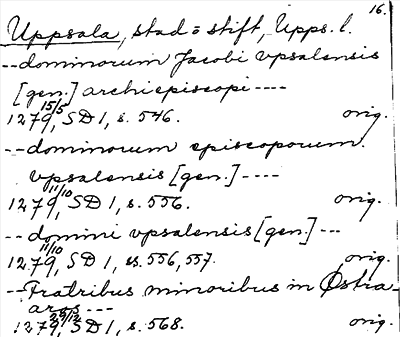 16.
Uppsala, stad = stift, Upps. l.
-- dominorum Jacobi vpsalensis
[gen.] archiepiscopi ----
15/5
1279, SD 1, s. 546. orig.
-- dominorum episcoporum.
vpsalensis [gen.] ----
11/10
1279, SD 1, s. 556. orig.
-- domini vpsalensis [gen.] ---
11/10
1279, SD 1, ss. 556, 557. orig.
-- Fratribus minoribus in Østra-
aros ---
1279, SD 1, s. 568. orig.